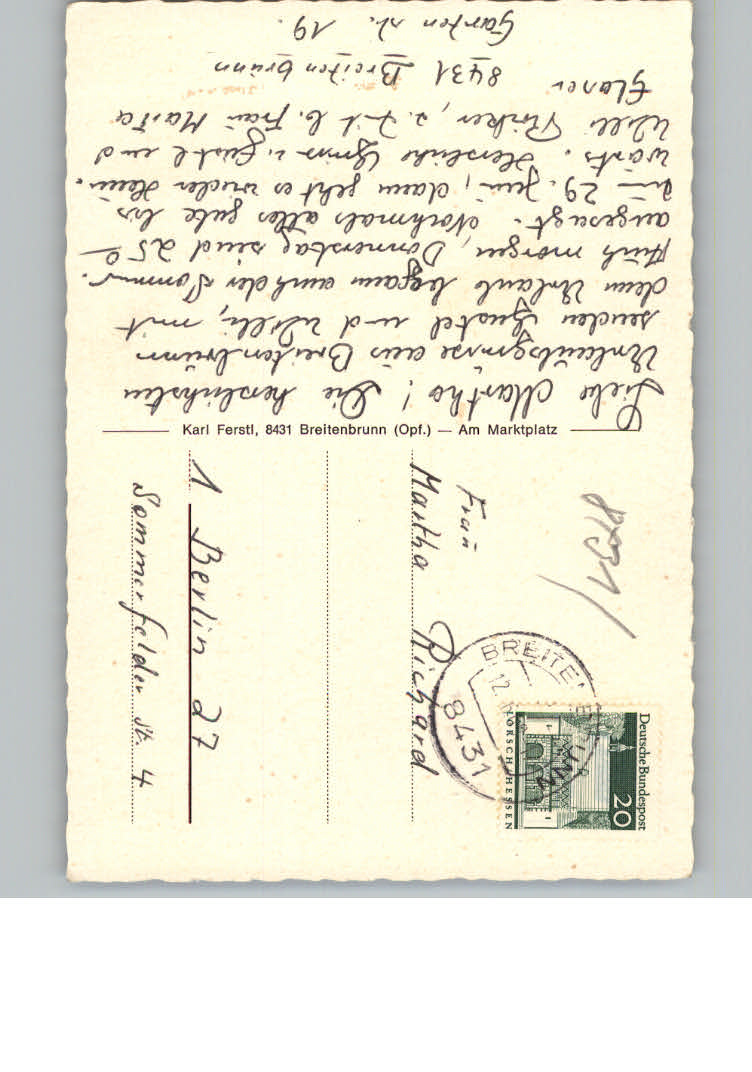 Liebe Martha! Die herzlichsten
Urlaubsgrüsse aus Breitenbrunn
senden Gustel und Willi, mit
dem Urlaub begann auch der Sommer.
Früh morgen, Donnerstag sind 25°
angesagt. Nochmals alles gute bis
zum 29. Juni, dann geht es wieder heim-
wärts. Herzliche Grüsse v. Gustl und
Willi z. Zt. b. Frau Maria
Glaser
8431 Breitenbrunn
Garten str. 19.
Karl Ferstl, 8431 Breitenbrunn (Opf.) — Am Marktplatz
Frau
Martha Richard
1 Berlin 27
Sommerfelder St. 4
8431
BREITENBRUNN
12.
8431
Deutsche Bundespost
20
LORSCH/HESSEN